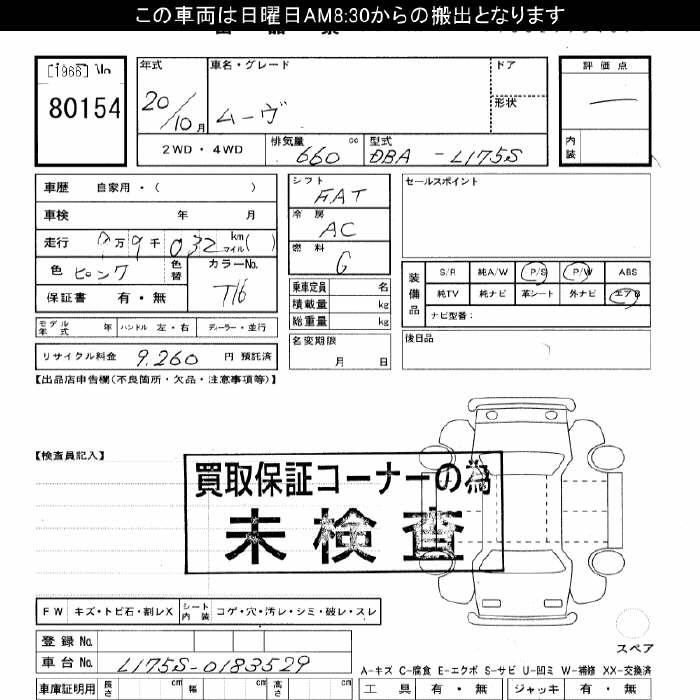 この車両は日曜日AM8:30からの搬出となります
[1966] No
80154
年式 車名・グレード ドア 評価点
20/10月 ムーヴ 形状
2WD・4WD 排気量 660 cc 型式 DBA-L175S 内装
車歴 自家用・( ) シフト FAT セールスポイント
車検 年 月 冷房 AC
走行 万9千032 km マイル ( ) 燃料 G
色 ピンク 色替 カラーNo. T16
保証書 有・無
乗車定員 名
積載量 kg
総重量 kg
装備品 S/R 純A/W P/S P/W ABS
純TV 純ナビ 革シート 外ナビ エアB
ナビ型番:
モデル年式 年 ハンドル 左・右 ディーラー・並行
名変期限 月 日
後日品
リサイクル料金 9,260 円 預託済
【出品店申告欄(不良箇所・欠品・注意事項等)】
【検査員記入】
買取保証コーナーの為
未検査
FW キズ・トビ石・割レX シート内装 コゲ・穴・汚レ・シミ・破レ・スレ
スペア
登録 No.
車台 No. L175S-0183529
A-キズ C-腐食 E-エクボ S-サビ U-凹ミ W-補修 XX-交換済
車庫証明用 長さ cm 幅 cm 高さ cm 工具 有・無 ジャッキ 有・無